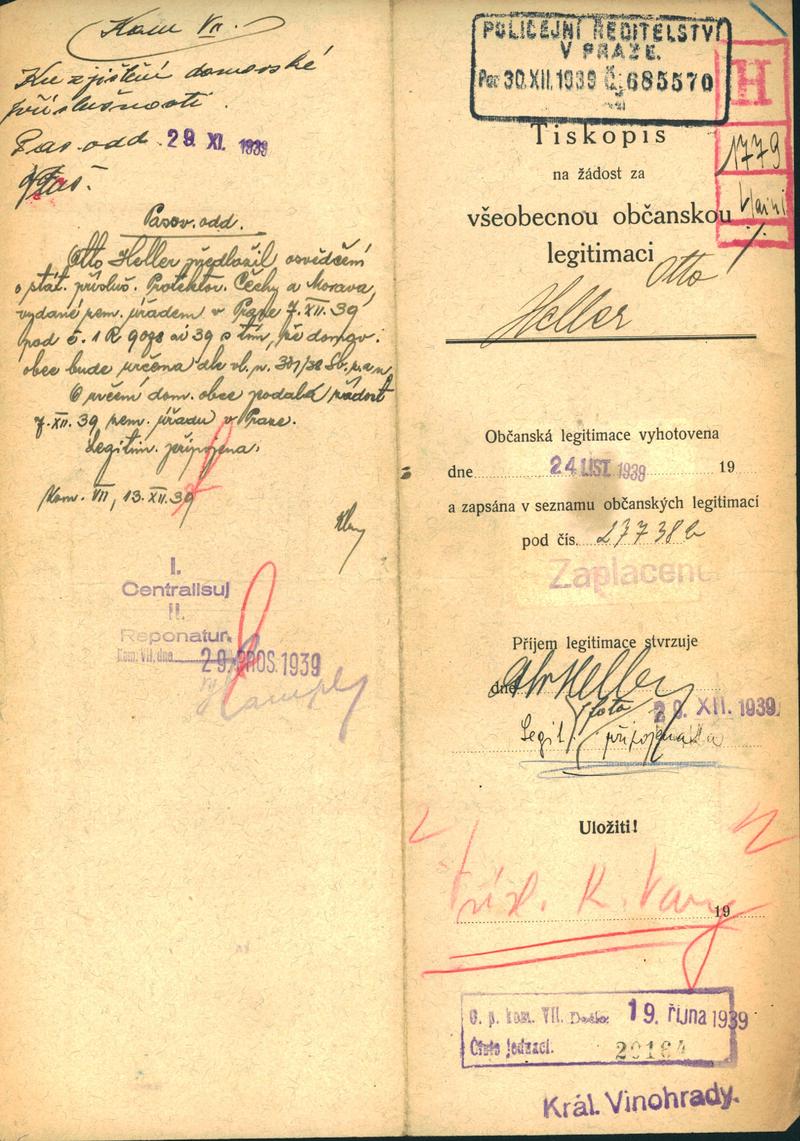 Kom VII.
Ku zjištění domovské
příslušnosti.
Pas. odd. 29. XI. 1939
Pasov. odd.
Otto Heller předložil osvědčení
o stát. přísluš. Protektor. Čechy a Morava,
vydané zem. úřadem v Praze 7.XII.39
pod č. 1 R 9098 ai 39 s tím, že domov.
obec bude určena dle vl. n. 301/38 Sb. z. a n.
O určení dom. obce podal žádost
7.XII.39 zem. úřadu v Praze.
Legitim. připojena.
Kom. VII, 13.XII.39
I.
Centralisuj
II.
Reponatur.
Kom. VII, dne 29. PROS. 1939
POLICEJNÍ ŘEDITELSTVÍ
V PRAZE.
30.XII.1939 Č. 685570
H
1779
Tiskopis
na žádost za
všeobecnou občanskou
legitimaci
Heller Otto
Občanská legitimace vyhotovena
dne 24 LIST. 1939 19
a zapsána v seznamu občanských legitimací
pod čís. 27738
Zaplaceno
Příjem legitimace stvrzuje
dne Otto Heller
foto 29. XII. 1939
Legit. připojena
Uložiti!
přísl. K. Vary 19
kom. VII. Došlo: 19. října 1939
Číslo jednací. 20184
Král. Vinohrady.